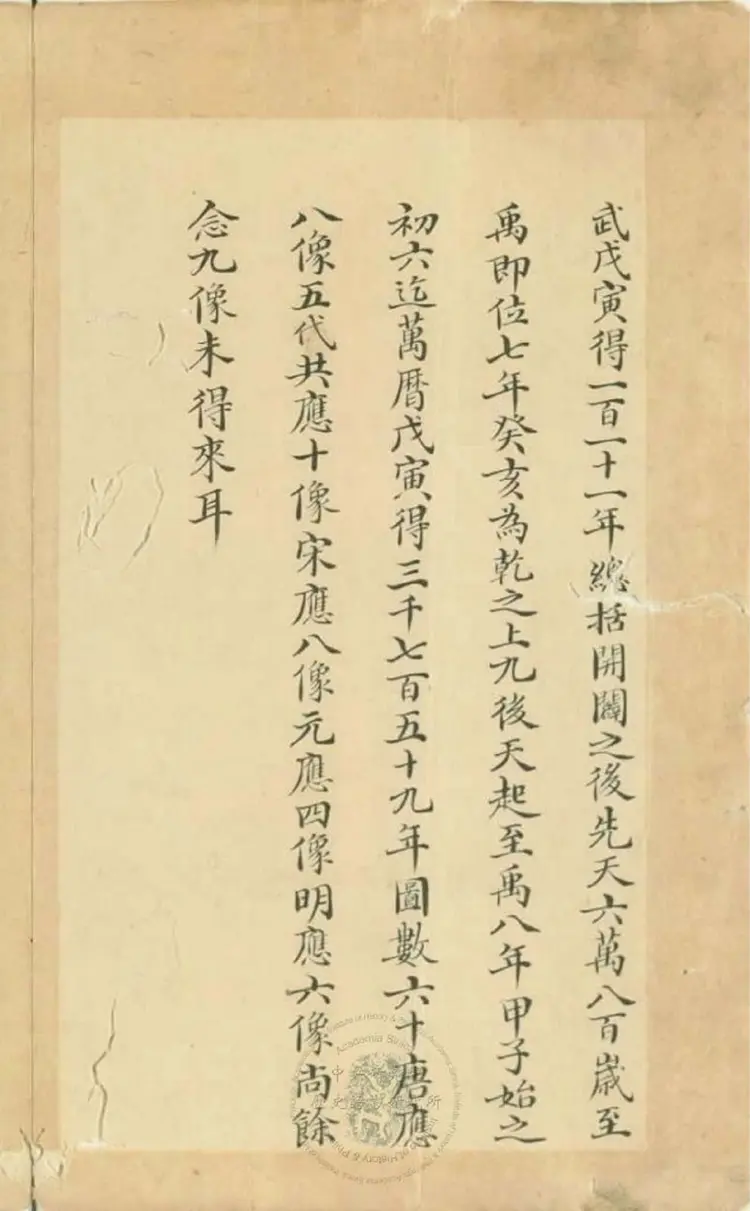 武戊寅得一百一十一年總括開闢之後先天六萬八百嵗至
禹即位七年癸亥為乾之上九後天起至禹八年甲子始之
初六迄萬曆戊寅得三千七百五十九年圖數六十唐應
八像五代共應十像宋應八像元應四像明應六像尚餘
念九像未得來耳
Academia Sinica